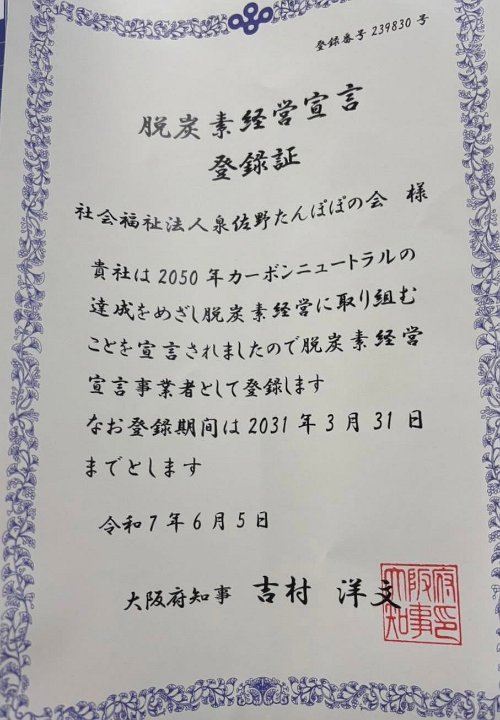 登録番号239830号
脱炭素経営宣言
登録証
社会福祉法人泉佐野たんぽぽの会 様
貴社は2050年カーボンニュートラルの
達成をめざし脱炭素経営に取り組む
ことを宣言されましたので脱炭素経営
宣言事業者として登録します
なお登録期間は2031年3月31日
までとします
令和7年6月5日
大阪府知事 吉村 洋文
大阪府知事印